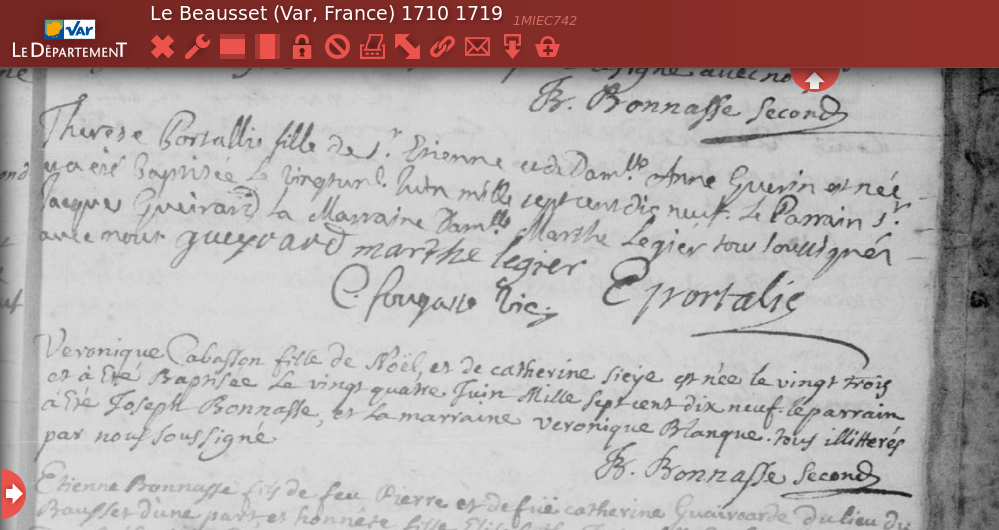 Le Beausset (Var, France) 1710 1719
1MIEC742
Var
LE DÉPARTEMENT
signé avec no
B. Bonnasse Second
Therese Portallis fille de s.r Etienne et de Dam.lle Anne Guerin est née
a été baptisée le vingtun Juin mille sept cent dix neuf. Le Parrain s.r
Jacques Gueirard La Marraine Dam.lle Marthe Legier tous soussignés
avec nous gueyrard marthe legier
C. fougasse Vic. E portalis
Veronique Cabasson fille de Noël, et de catherine sieye est née le vingt trois
et à Eté Baptisée Le vingt quatre Juin Mille sept cent dix neuf. le parrain
à Eté Joseph Bonnasse, et La marraine veronique Blanque. tous illitterés
par nous soussigné
B. Bonnasse Second
Etienne Bonnasse fils de feu Pierre et de feüe catherine Guairoarde du lieu du
Bausset d'une part, et honnête fille